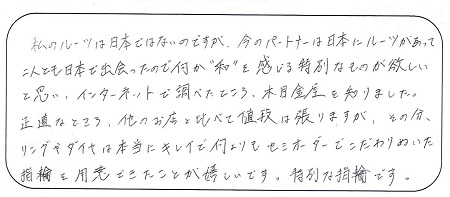 私のルーツは日本ではないのですが、今のパートナーは日本にルーツがあって
二人とも日本で出会ったので何か“和”を感じる特別なものが欲しい
と思い、インターネットで調べたところ、木目金屋を知りました。
正直なところ、他のお店と比べて値段は張りますが、その分、
リングやダイヤは本当にキレイで何よりもセミオーダーでこだわりぬいた
指輪を用意できたことが嬉しいです。特別な指輪です。